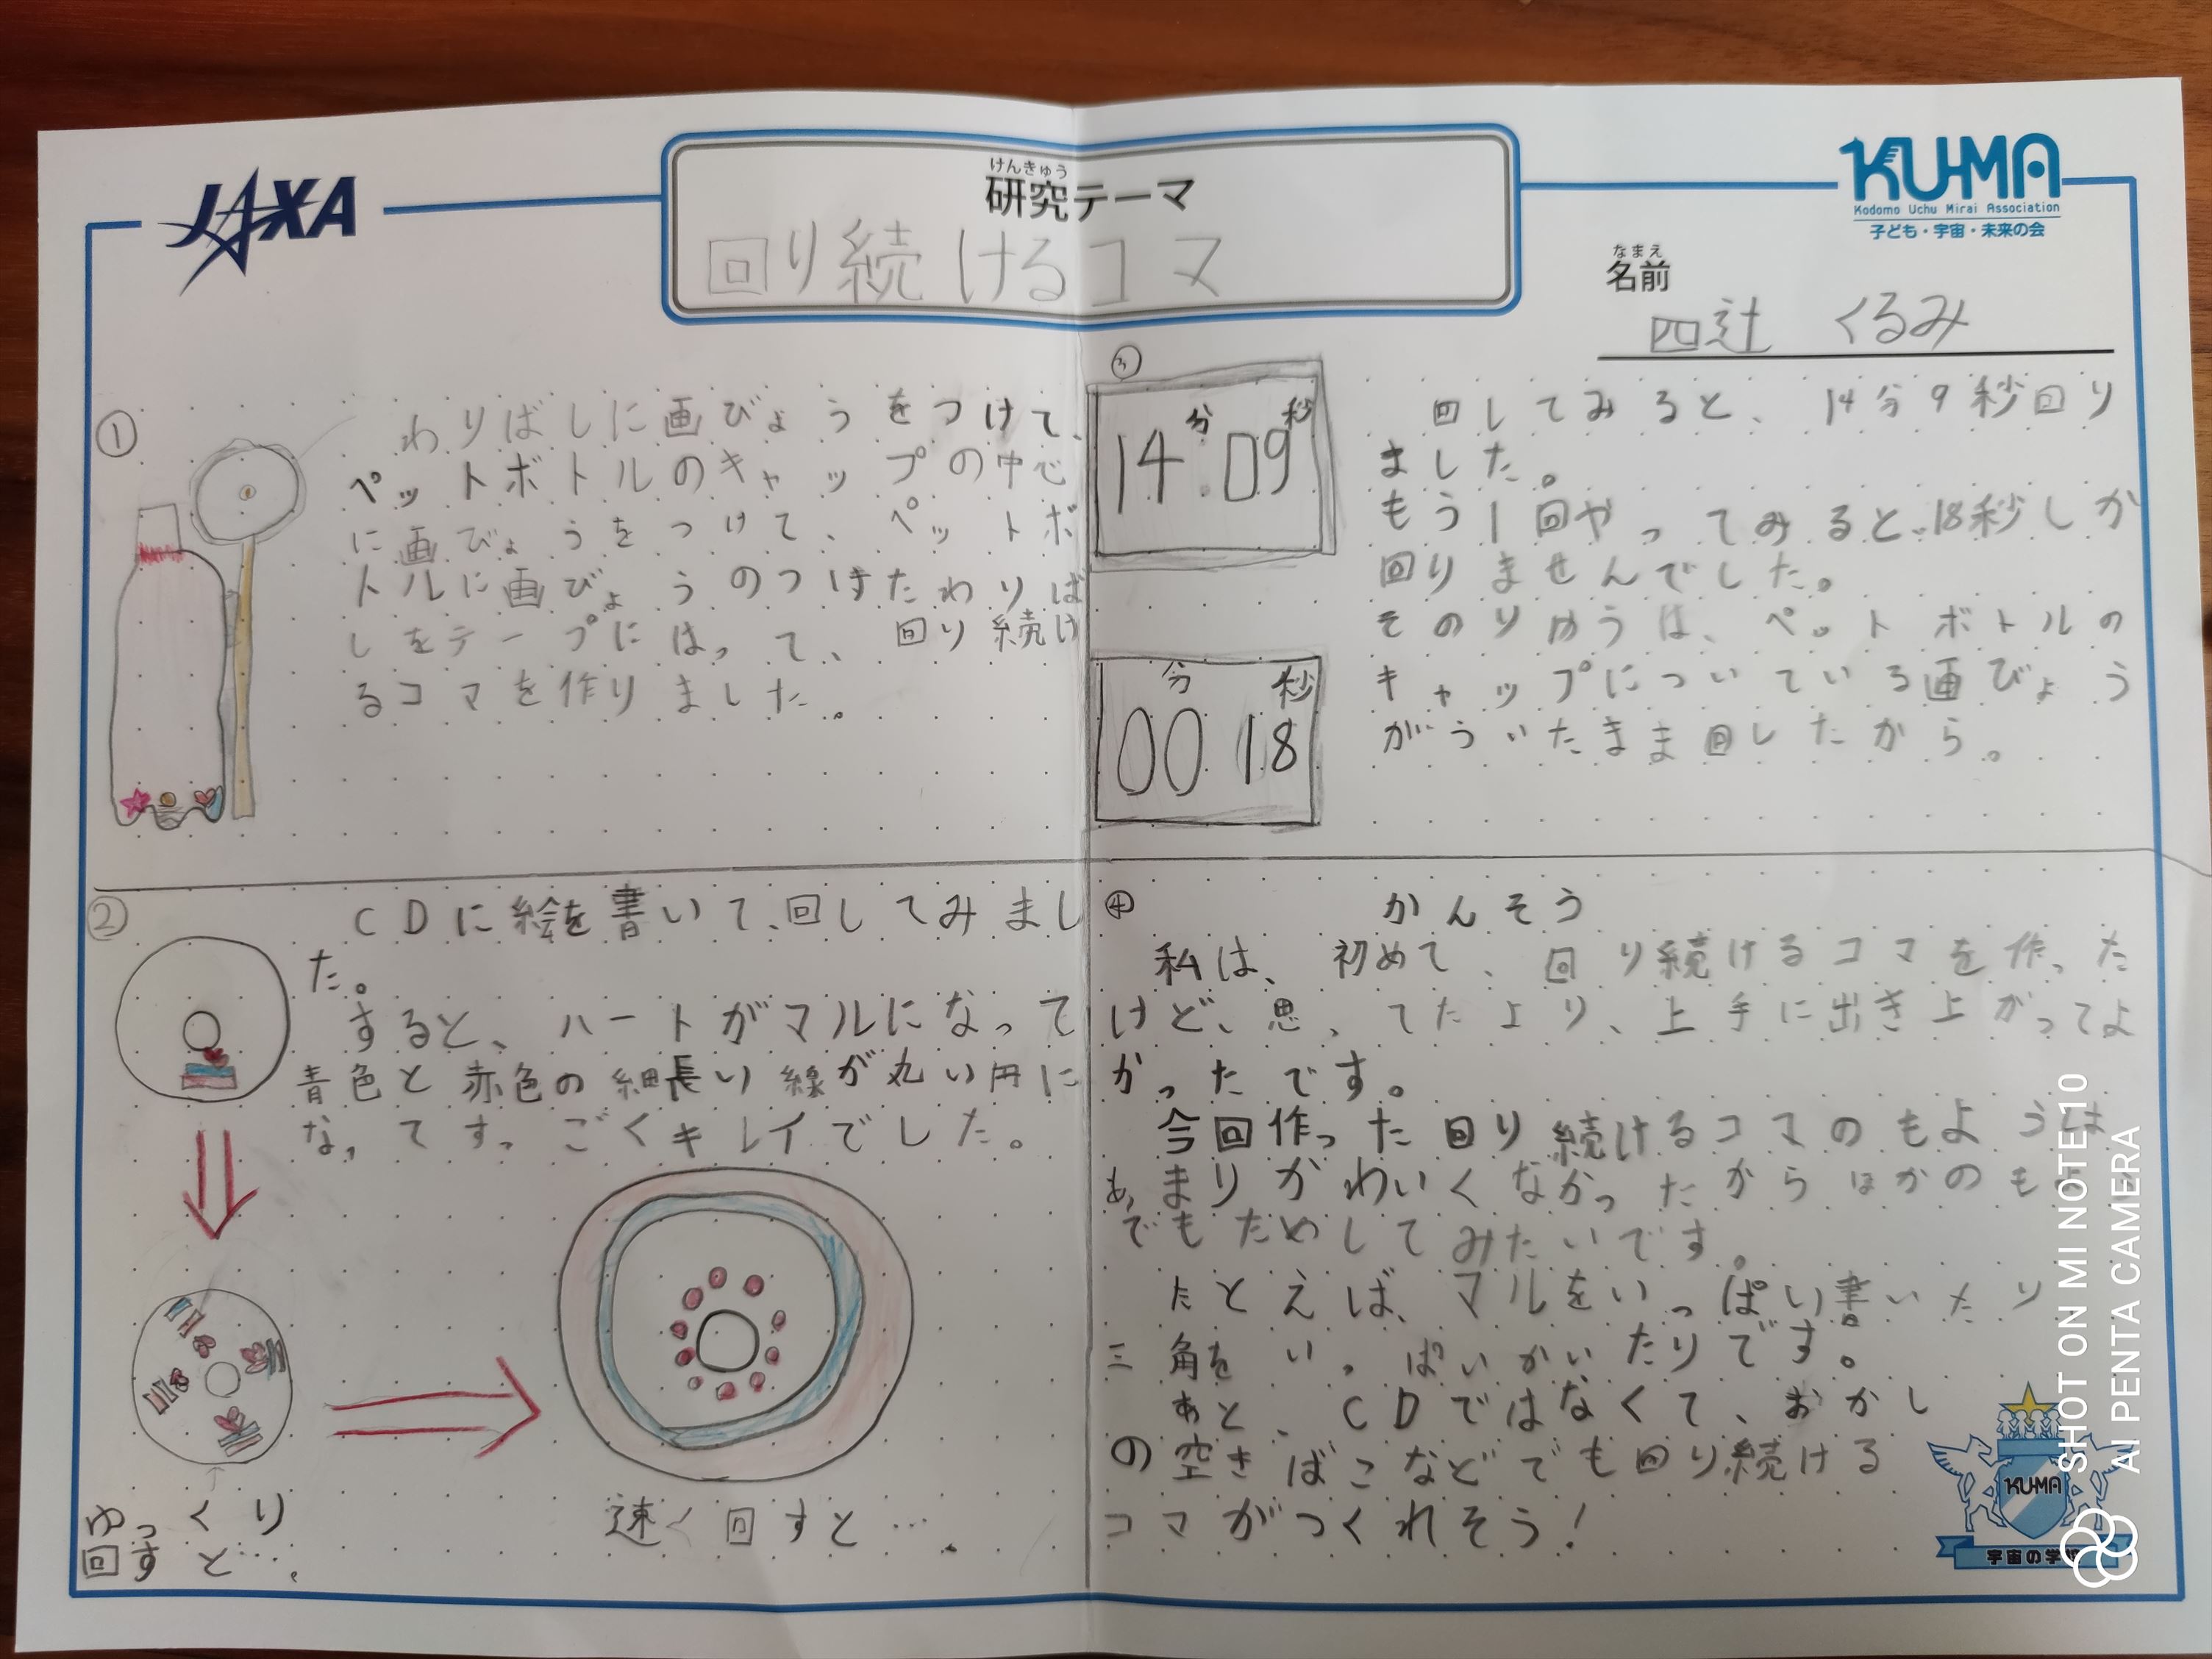 JAXA
けんきゅう
研究テーマ
回り続けるコマ
KU-MA
Kodomo Uchu Mirai Association
子ども・宇宙・未来の会
なまえ
名前
四辻 くるみ
①
わりばしに画びょうをつけて、
ペットボトルのキャップの中で
に画びょうをつけて、ペットボ
トルに画びょうのつけたわりば
しをテープにはって、回り続け
るコマを作りました。
②
CDに絵を書いて、回してみまし
た。
すると、ハートがマルになって
青色と赤色の細長い線が丸い円に
なってすっごくキレイでした。
ゆっくり
回すと…。
速く回すと….
③
14分09秒
00分18秒
回してみると、14分9秒回り
ました。
もう1回やってみると、18秒しか
回りませんでした。
そのりゆうは、ペットボトルの
キャップについている画びょう
がういたまま回したから。
④
かんそう
私は、初めて、回り続けるコマを作った
けど、思ってたより、上手に出き上がってよ
かったです。
今回作った回り続けるコマのもようは
あまりかわいくなかったからほかのもよ
でもためしてみたいです。
たとえば、マルをいっぱい書いたり
三角をいっぱいかいたりです。
あと、CDではなくて、おかし
の空きばこなどでも回り続ける
コマがつくれそう!
KU-MA
宇宙の学校
SHOT ON MI NOTE 10
AI PENTA CAMERA